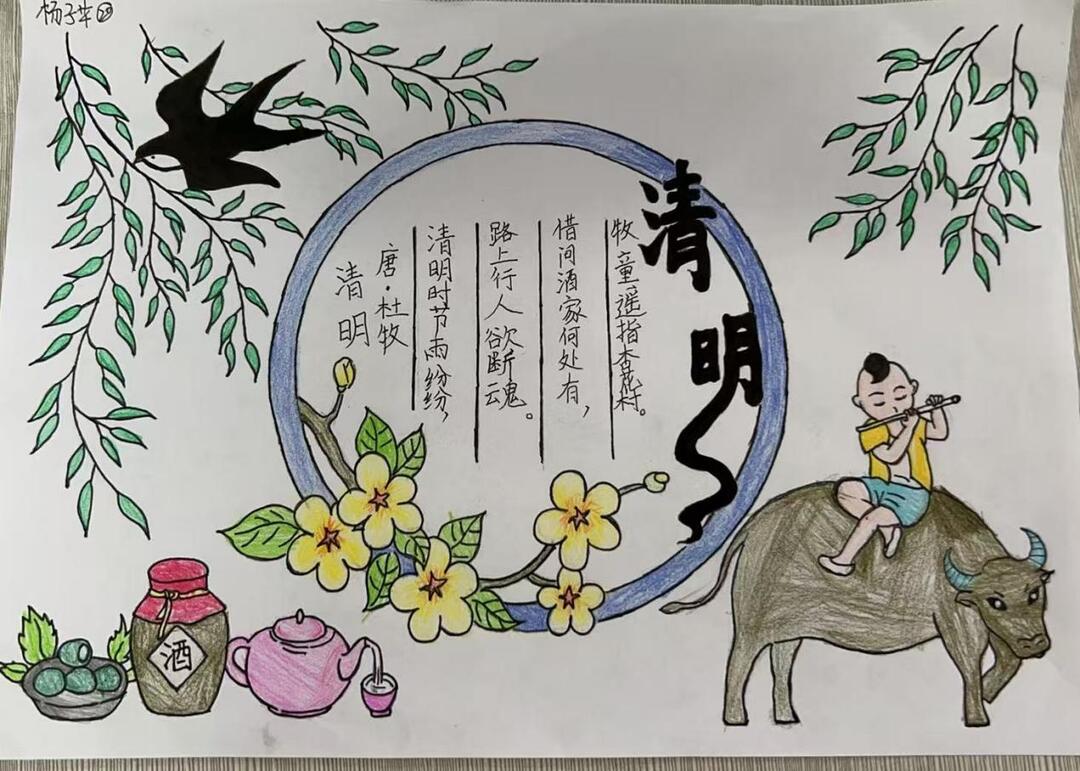 清明
清明
唐·杜牧
清明时节雨纷纷，
路上行人欲断魂。
借问酒家何处有，
牧童遥指杏花村。
酒